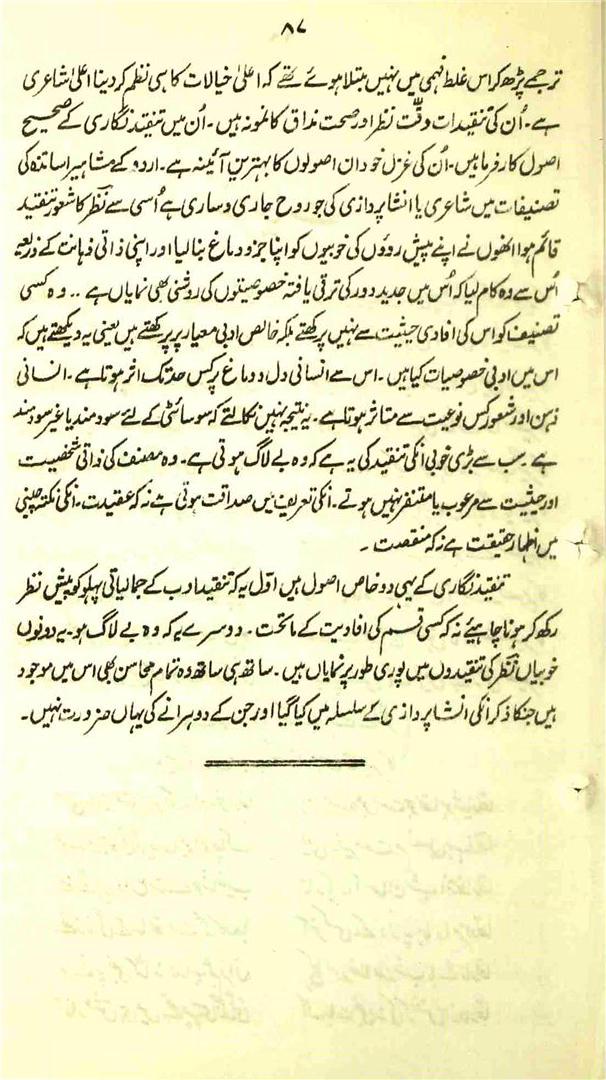 ۸۷
ترجمے پڑھ کر اس غلط فہمی میں نہیں مبتلا ہوئے تھے کہ اعلیٰ خیالات کا ہی نظم کر دینا اعلیٰ شاعری
ہے۔ اُن کی تنقیدات دقّت نظر اور صحت مذاق کا نمونہ ہیں۔ اُن میں تنقید نگاری کے صحیح
اصول کارفرما ہیں۔ اُن کی غزل خود ان اصولوں کا بہترین آئینہ ہے۔ اردو کے مشاہیر اساتذہ کی
تصنیفات میں شاعری یا انشا پردازی کی جو روح جاری و ساری ہے اُسی سے نظر کا شعور تنقید
قائم ہوا انھوں نے اپنے پیش روؤں کی خوبیوں کو اپنا جزو دماغ بنا لیا اور اپنی ذاتی ذہانت کے ذریعہ
اُس سے وہ کام لیا کہ اُس میں جدید دور کی ترقی یافتہ خصوصیتوں کی روشنی بھی نمایاں ہے .. وہ کسی
تصنیف کو اس کی افادی حیثیت سے نہیں پرکھتے بلکہ خالص ادبی معیار پر پرکھتے ہیں یعنی یہ دیکھتے ہیں کہ
اس میں ادبی خصوصیات کیا ہیں۔ اس سے انسانی دل و دماغ پر کس حد تک اثر ہوتا ہے۔ انسانی
ذہن اور شعور کس نوعیت سے متاثر ہوتا ہے۔ یہ نتیجہ نہیں نکالتے کہ سوسائٹی کے لئے سود مند یا غیر سود مند
ہے۔ سب سے بڑی خوبی انکی تنقید کی یہ ہے کہ وہ بے لاگ ہوتی ہے۔ وہ مصنف کی ذاتی شخصیت
اور حیثیت سے مرعوب یا متنفر نہیں ہوتے۔ انکی تعریف میں صداقت ہوتی ہے نہ کہ عقیدت۔ انکی نکتہ چینی
میں اظہار حقیقت ہے نہ کہ منقصت۔
تنقید نگاری کے یہی دو خاص اصول ہیں اوّل یہ کہ تنقید ادب کے جمالیاتی پہلو کو پیش نظر
رکھ کر ہونا چاہیئے نہ کہ کسی قسم کی افادیت کے ماتحت۔ دوسرے یہ کہ وہ بے لاگ ہو۔ یہ دونوں
خوبیاں نظر کی تنقیدوں میں پوری طور پر نمایاں ہیں۔ ساتھ ہی ساتھ وہ تمام محاسن بھی اس میں موجود
ہیں جنکا ذکر انکی انشا پردازی کے سلسلہ میں کیا گیا اور جن کے دوہرانے کی یہاں ضرورت نہیں۔